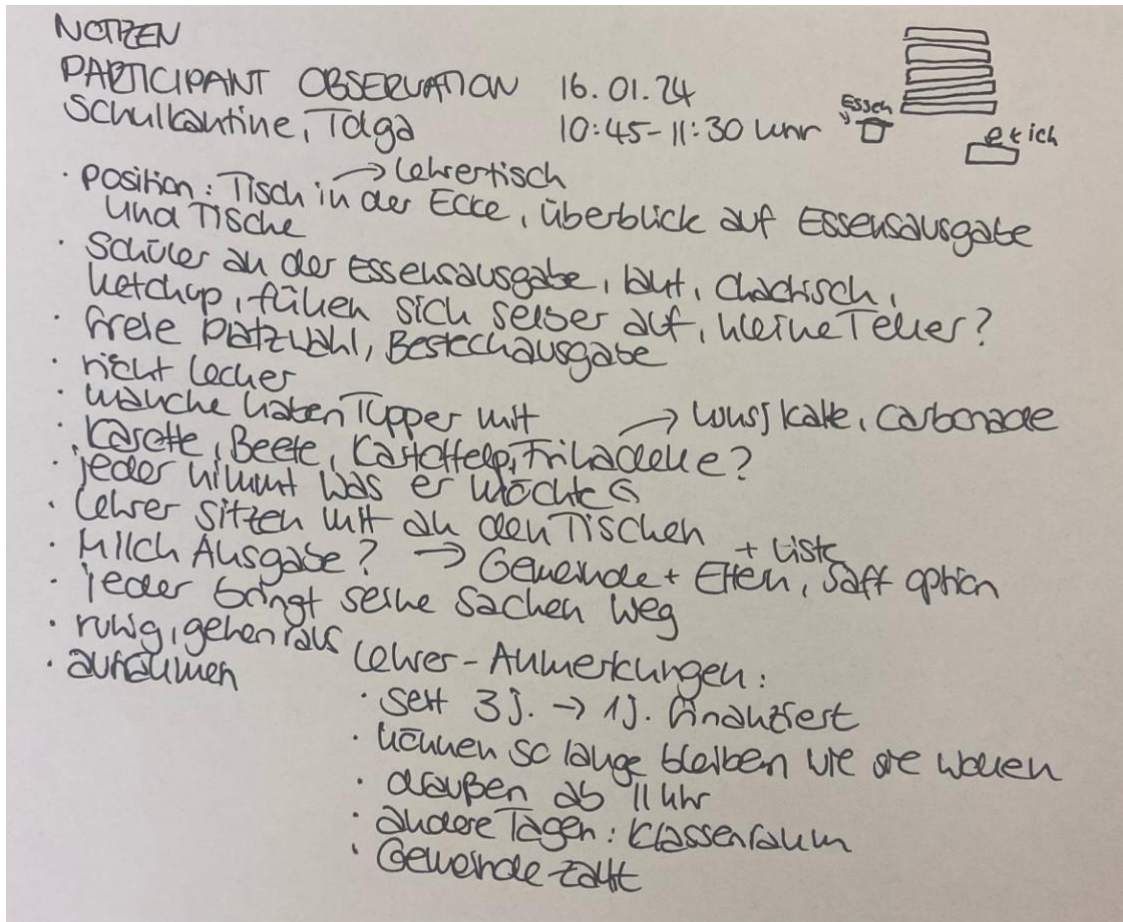 NOTIZEN
PARTICIPANT OBSERVATION 16.01.24
Schulkantine, Tolga 10:45-11:30 Uhr
Essen
ich
→ Lehrertisch
· Position: Tisch in der Ecke, überblick auf Essensausgabe
und Tische
· Schüler an der Essensausgabe, laut, chaotisch,
ketchup, füllen sich selber auf, kleine Teller?
· freie Platzwahl, Besteckausgabe
· nicht lecker
· manche haben Tupper mit
· Karotte, Beete, Kartoffeln, Frikadelle? → Carbonade
· jeder nimmt was er möchte
· Lehrer sitzen mit an den Tischen
· Milch Ausgabe? → Gemeinde + Eltern, Saft option
+ Liste
· jeder bringt seine Sachen weg
· ruhig, gehen raus
· aufräumen
Lehrer-Anmerkungen:
· seit 3 J. → 1J. finanziert
· können so lange bleiben wie sie wollen
· draußen ab 11 Uhr
· andere Tagen: Klassenraum
· Gemeinde zahlt